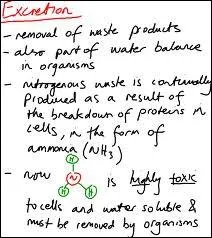 Excretion
- removal of waste products
- also part of water balance
in organisms
- nitrogenous waste is continually
produced as a result of
the breakdown of proteins in
cells, in the form of
ammonia (NH3)
H
- now N is highly toxic
H H
to cells and water soluble &
must be removed by organisms